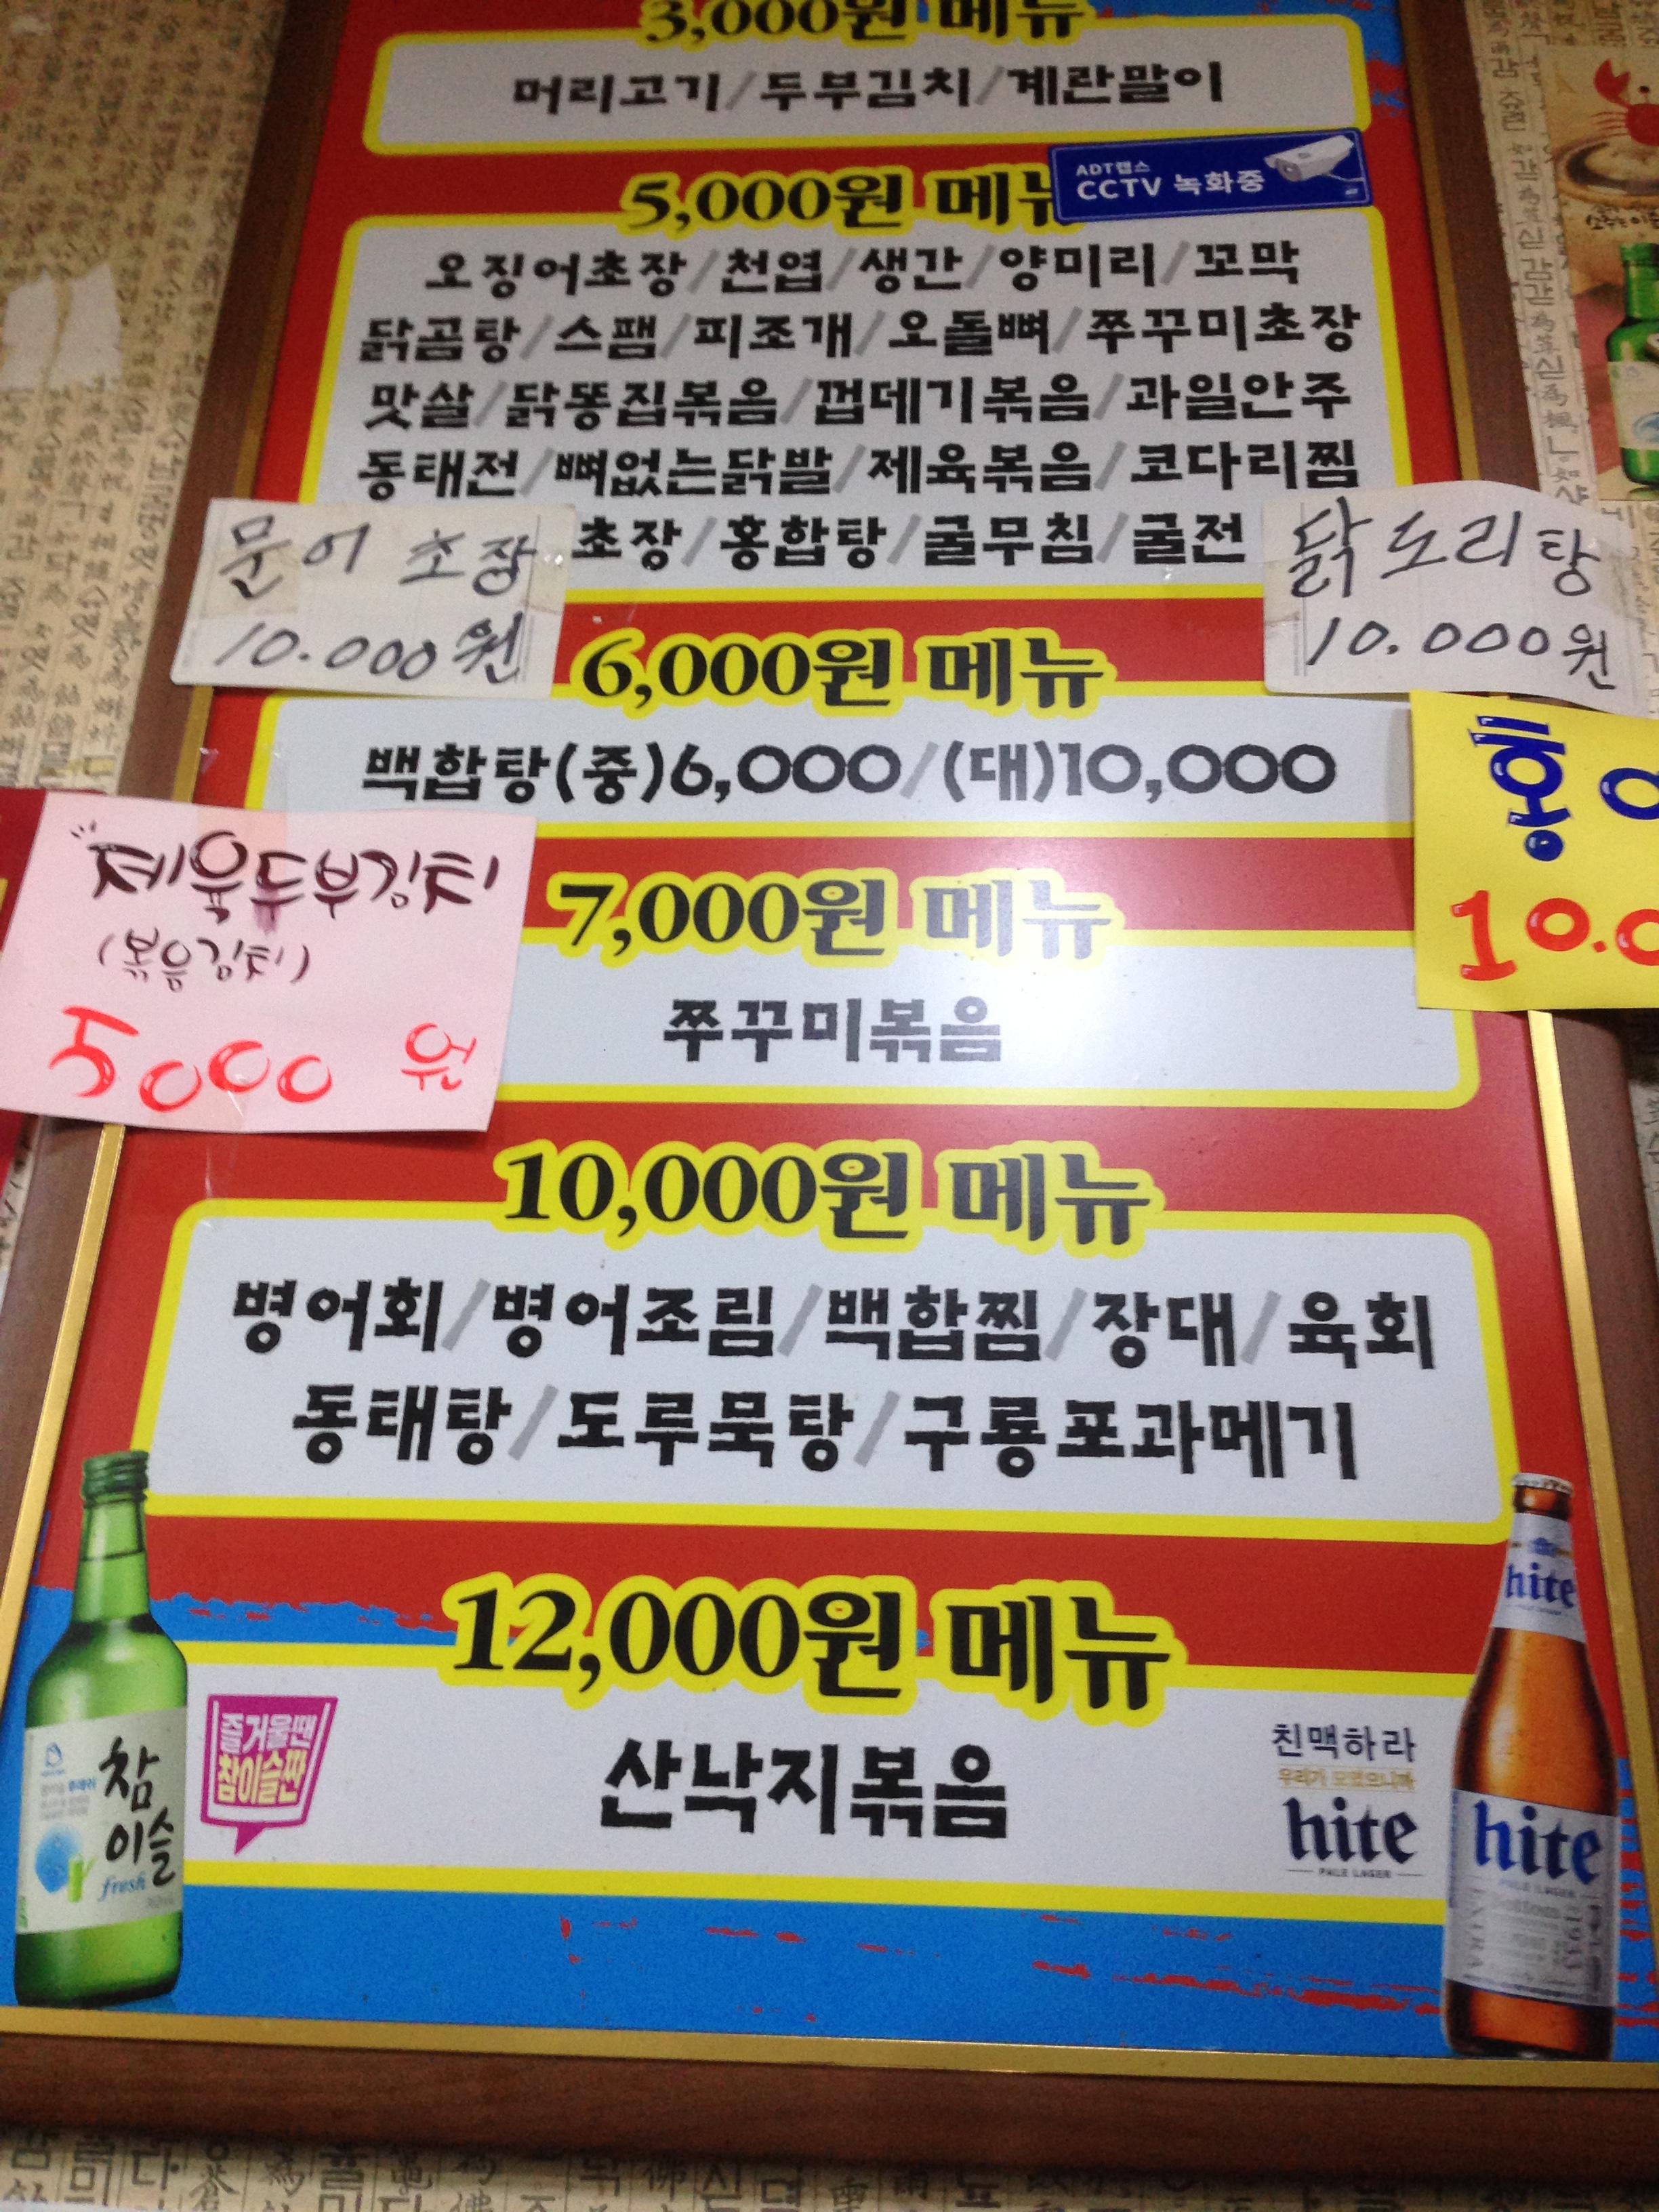 3,000원 메뉴
머리고기/두부김치/계란말이
ADT캡스
CCTV 녹화중
5,000원 메뉴
오징어초장/천엽/생간/양미리/꼬막
닭곰탕/스팸/피조개/오돌뼈/쭈꾸미초장
맛살/닭똥집볶음/껍데기볶음/과일안주
동태전/뼈없는닭발/제육볶음/코다리찜
초장/홍합탕/굴무침/굴전
문어 초장
10.000원
닭도리탕
10.000원
6,000원 메뉴
백합탕(중)6,000/(대)10,000
제육두부김치
(볶음김치)
5000 원
10.0
7,000원 메뉴
쭈꾸미볶음
10,000원 메뉴
병어회/병어조림/백합찜/장대/육회
동태탕/도루묵탕/구룡포과메기
12,000원 메뉴
산낙지볶음
즐거울땐
참이슬짠
참
이슬
fresh
친맥하라
우리가 모였으니까
hite
PALE LAGER
hite
hite
PALE LAGER
EXTRA
1933